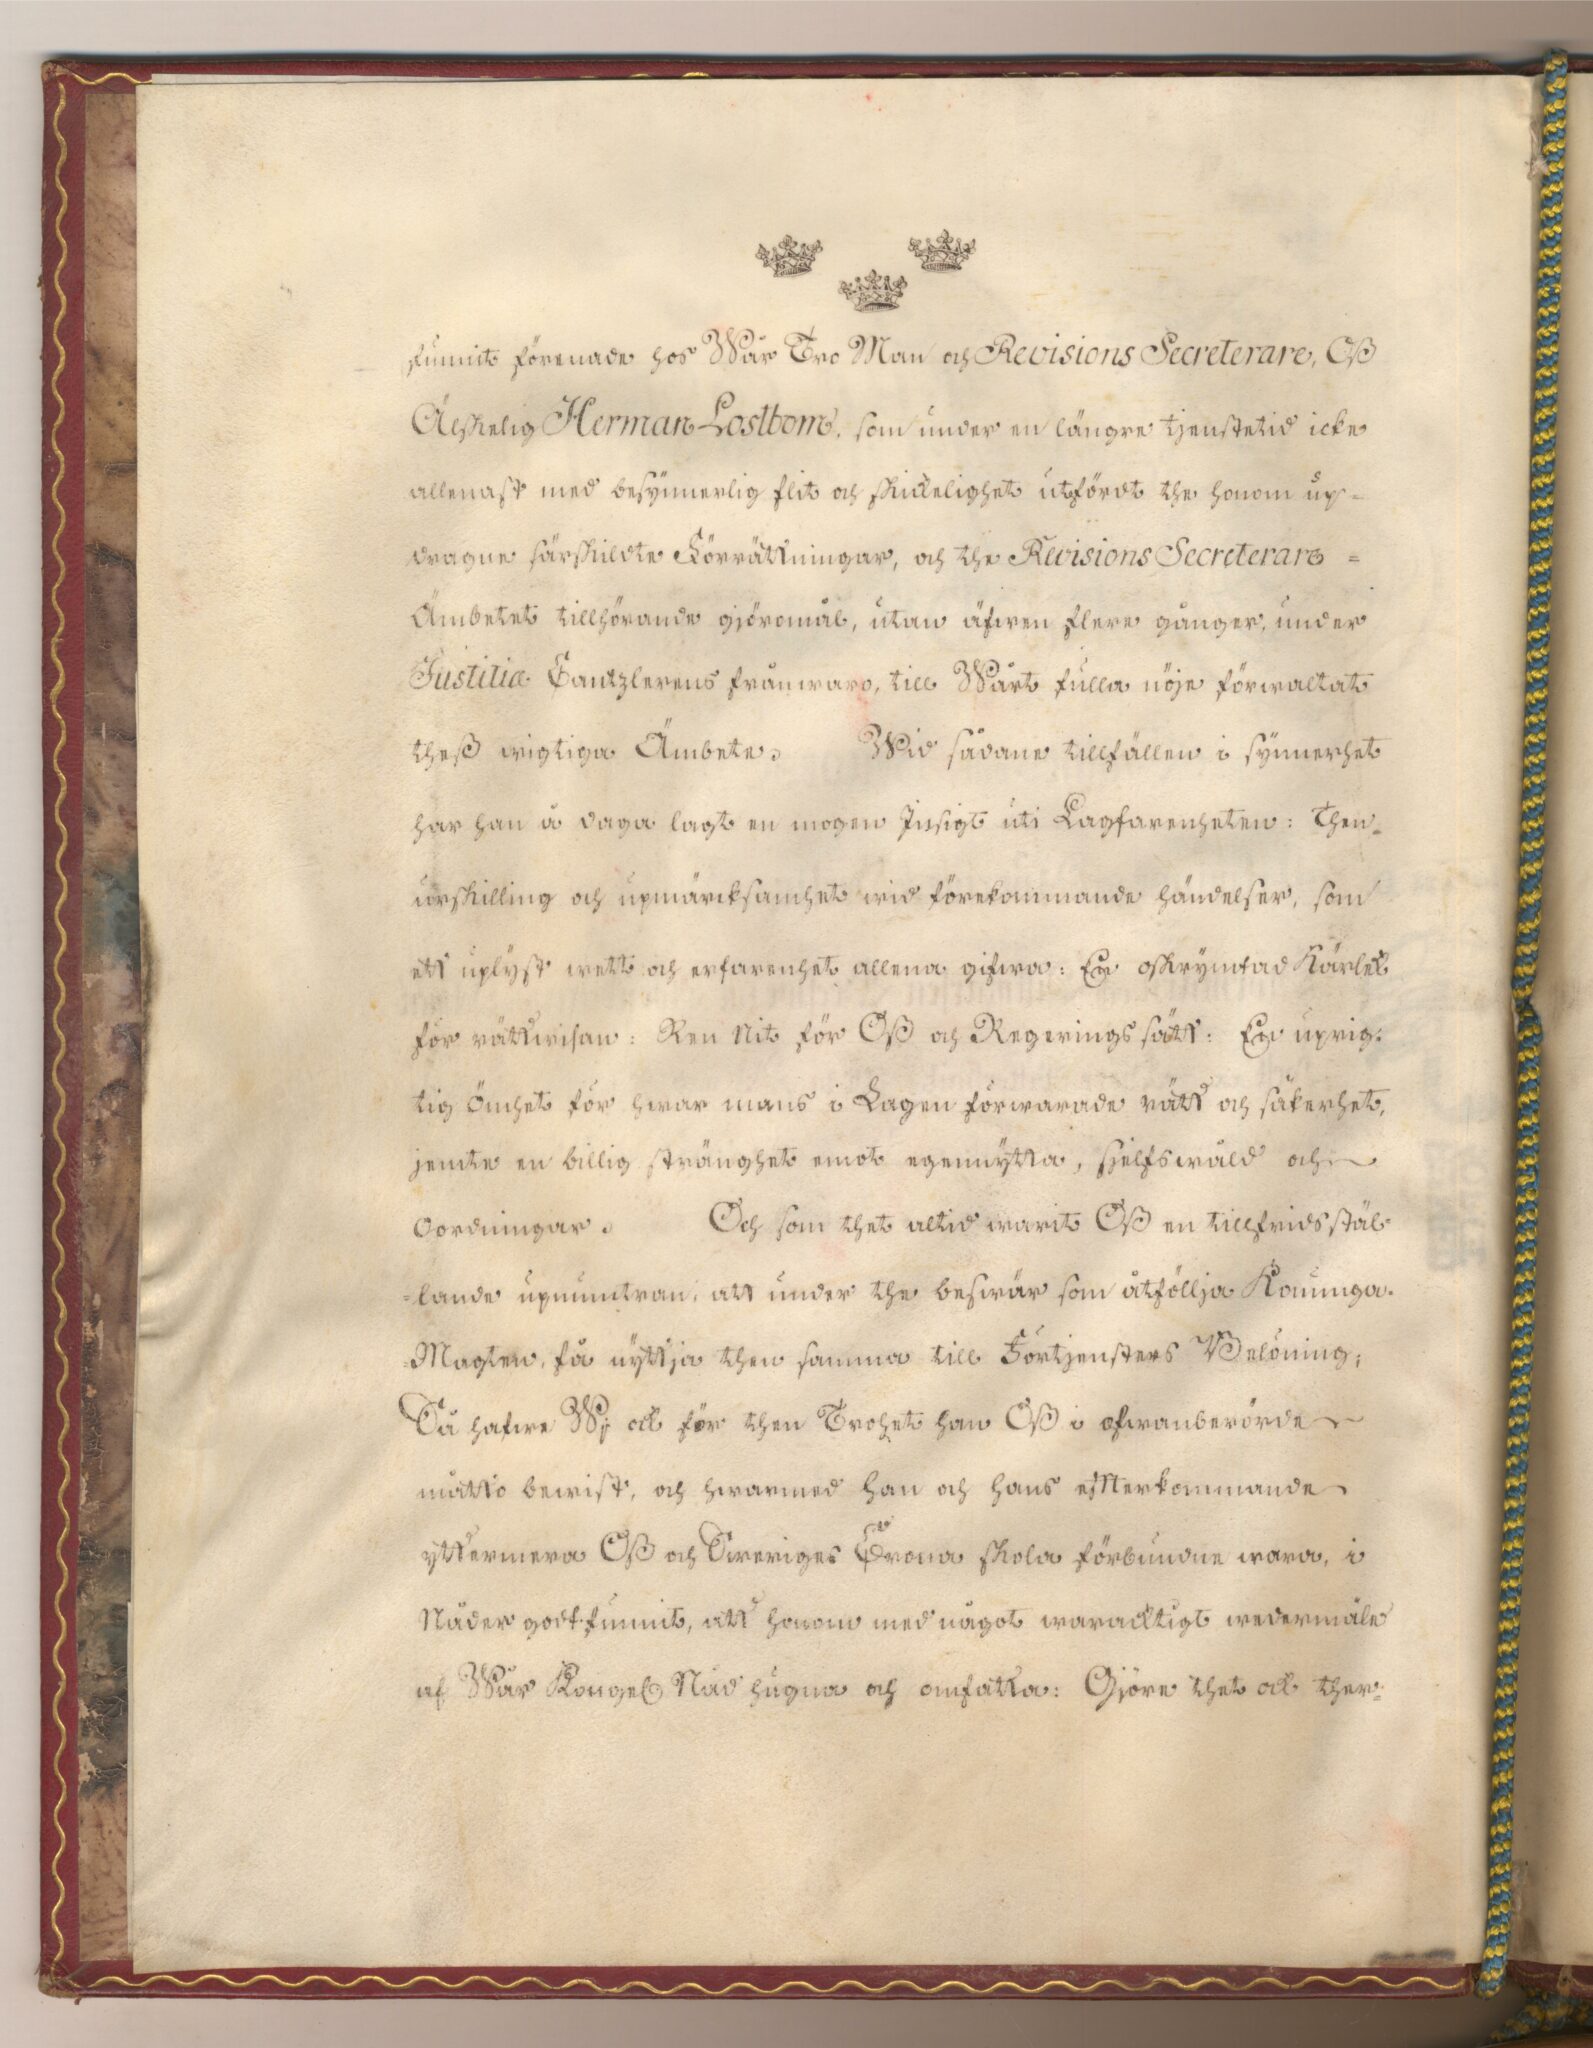 funnit förenade hos Wår Tro Man och Revisions Secreterare, Oß
Älskelig Herman Lostbom, som under en längre tjenstetid icke
allenast med besynnerlig flit och skickelighet utfördt the honom up-
dragne särskildte Förrättningar, och the Revisions Secreterare =
Ämbetet tillhörande gjöromål, utan äfwen flere gånger, under
Justitiæ Cantzlerens frånwaro, till Wårt fulla nöje förwaltat
theß wigtiga Ämbete. Wid sådane tillfällen i synnerhet
har han å daga lagt en mogen Insigt uti Lagfarenheten: Then
urskilling och upmärcksamhet wid förekommande händelser, som
ett uplyst wett och erfarenhet allena gifwa: En oskrymtad Kärlek
för rättwisan: Ren Nit för Oß och Regeringssätt: En uprig:
tig Ömhet för hwar mans i Lagen förwarade rätt och säkerhet,
jemte en billig stränghet emot egennytta, sjelfswåld och
Oordningar. Och som thet altid warit Oß en tillfridsstäl-
=lande upmuntran, att under the beswär som åtföllja Konunga-
=Magten, få nyttja then samma till Förtjensters Belöning;
Så hafwe Wj ock för then Trohet han Oß i ofwanberörde
måtto bewist, och hwarmed han och hans efterkommande
yttermera Oß och Sweriges Crona skola förbundne wara, i
Nåder godtfunnit, att honom med något warachtigt wedermäle
af Wår Kongel. Nåd hugna och omfatta: Gjöre thet ock ther: